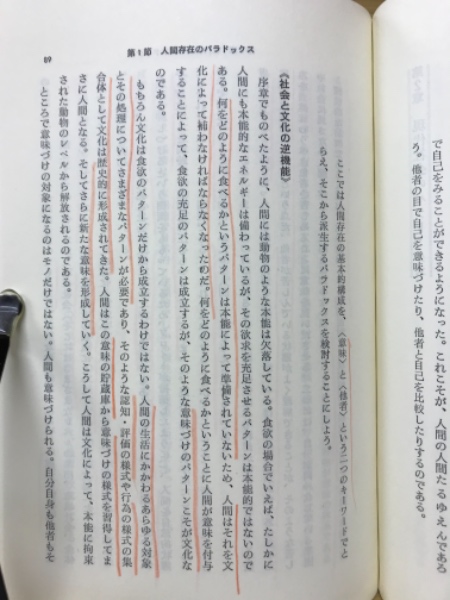 で自己をみることができるようになった。これこそが、人間の人間たるゆえんである
う。他者の目で自己を意味づけたり、他者と自己を比較したりするのである。
第1節 人間存在のパラドックス
ここでは人間存在の基本的構成を、〈意味〉と〈他者〉という二つのキーワードでと
らえ、そこから派生するパラドックスを検討することにしよう。
《社会と文化の逆機能》
序章でものべたように、人間には動物のような本能は欠落している。食欲の場合でいえば、たしかに
人間にも本能的なエネルギーは備わっているが、その欲求を充足させるパターンは本能的ではないので
ある。何をどのように食べるかというパターンは本能によって準備されていないため、人間はそれを文
化によって補わなければならなくなったのだ。何をどのように食べるかということに人間が意味を付与
することによって、食欲の充足のパターンは成立するが、そのような意味づけのパターンこそが文化な
のである。
もちろん文化は食欲のパターンだけから成立するわけではない。人間の生活にかかわるあらゆる対象
とその処理についてさまざまなパターンが必要であり、そのような認知・評価の様式や行為の様式の集
合体として文化は歴史的に形成されてきた。人間はこの意味の貯蔵庫から意味づけの様式を習得してま
さに人間となる。そしてさらに新たな意味を形成していく。こうして人間は文化によって、本能に拘束
された動物のレベルから解放されるのである。
ところで意味づけの対象になるのはモノだけではない。人間も意味づけられる。自分自身も他者もそ